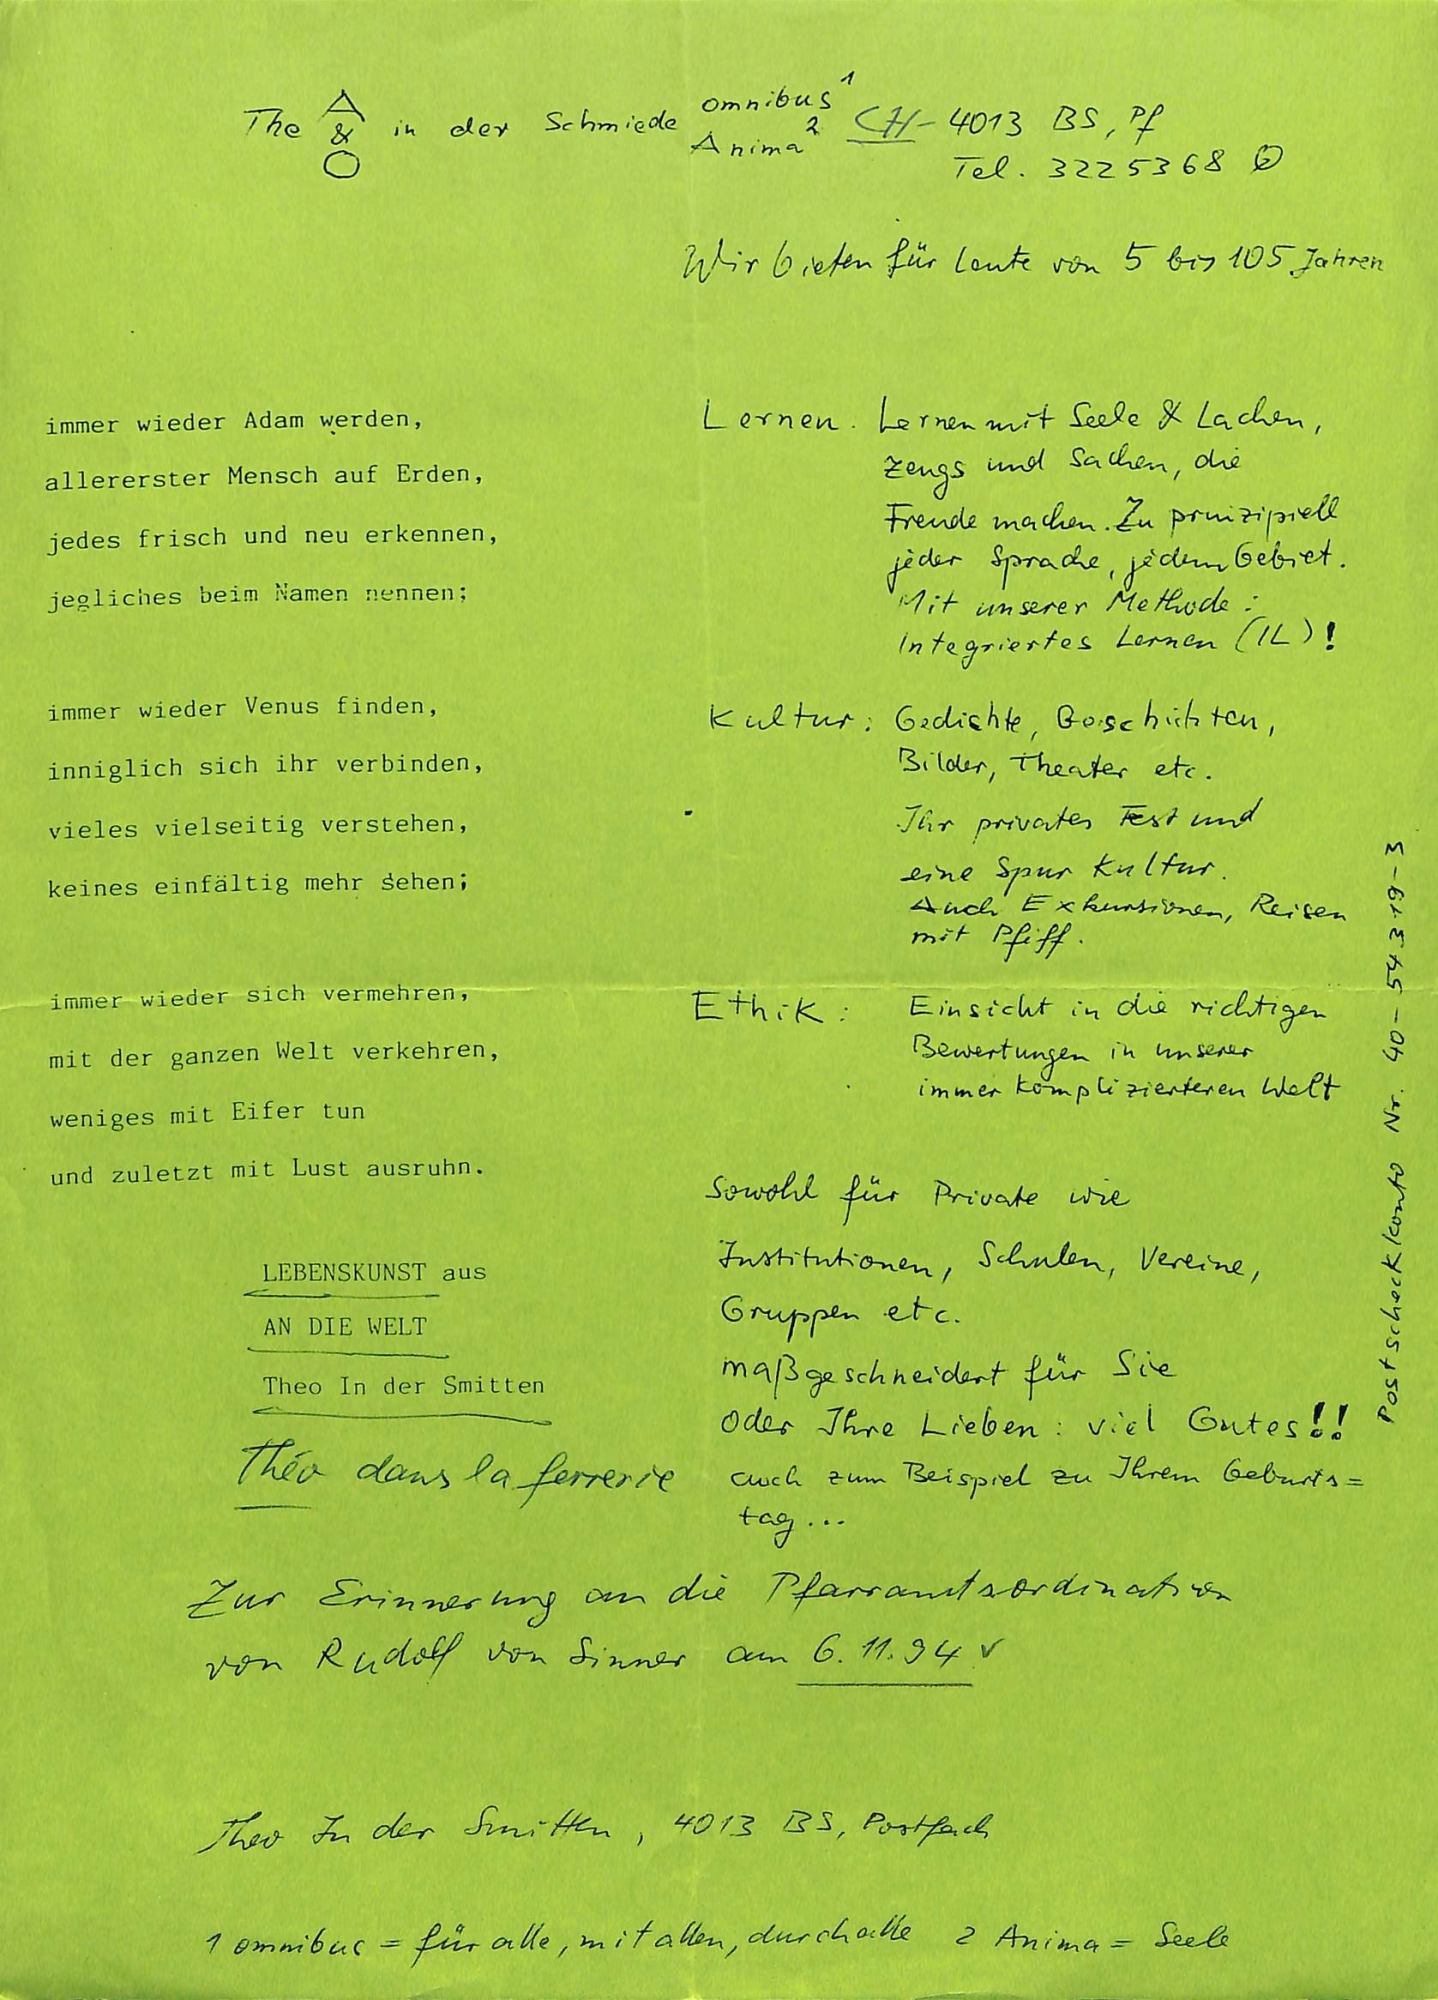 The A & O in der Schmiede omnibus¹ Anima² CH-4013 BS, Pf
Tel. 3225368
Wir bieten für Leute von 5 bis 105 Jahren
immer wieder Adam werden,
allererster Mensch auf Erden,
jedes frisch und neu erkennen,
jegliches beim Namen nennen;
immer wieder Venus finden,
inniglich sich ihr verbinden,
vieles vielseitig verstehen,
keines einfältig mehr sehen;
immer wieder sich vermehren,
mit der ganzen Welt verkehren,
weniges mit Eifer tun
und zuletzt mit Lust ausruhn.
LEBENSKUNST aus
AN DIE WELT
Theo In der Smitten
Théo dans la ferrerie
Lernen. Lernen mit Seele & Lachen,
Zeugs und Sachen, die
Freude machen. Zu prinzipiell
jeder Sprache, jedem Gebiet.
Mit unserer Methode:
Integriertes Lernen (IL)!
Kultur: Gedichte, Geschichten,
Bilder, Theater etc.
Ihr privates Fest und
eine Spur Kultur.
Auch Exkursionen, Reisen
mit Pfiff.
Ethik: Einsicht in die richtigen
Bewertungen in unserer
immer komplizierteren Welt
Sowohl für Private wie
Institutionen, Schulen, Vereine,
Gruppen etc.
maßgeschneidert für Sie
oder Ihre Lieben: viel Gutes!!
auch zum Beispiel zu Ihrem Geburts=
tag...
Postscheckkonto Nr. 40-54319-3
Zur Erinnerung an die Pfarramtsordination
von Rudolf von Sinner am 6.11.94
Theo In der Smitten, 4013 BS, Postfach
1 omnibus = für alle, mit allen, durch alle 2 Anima = Seele